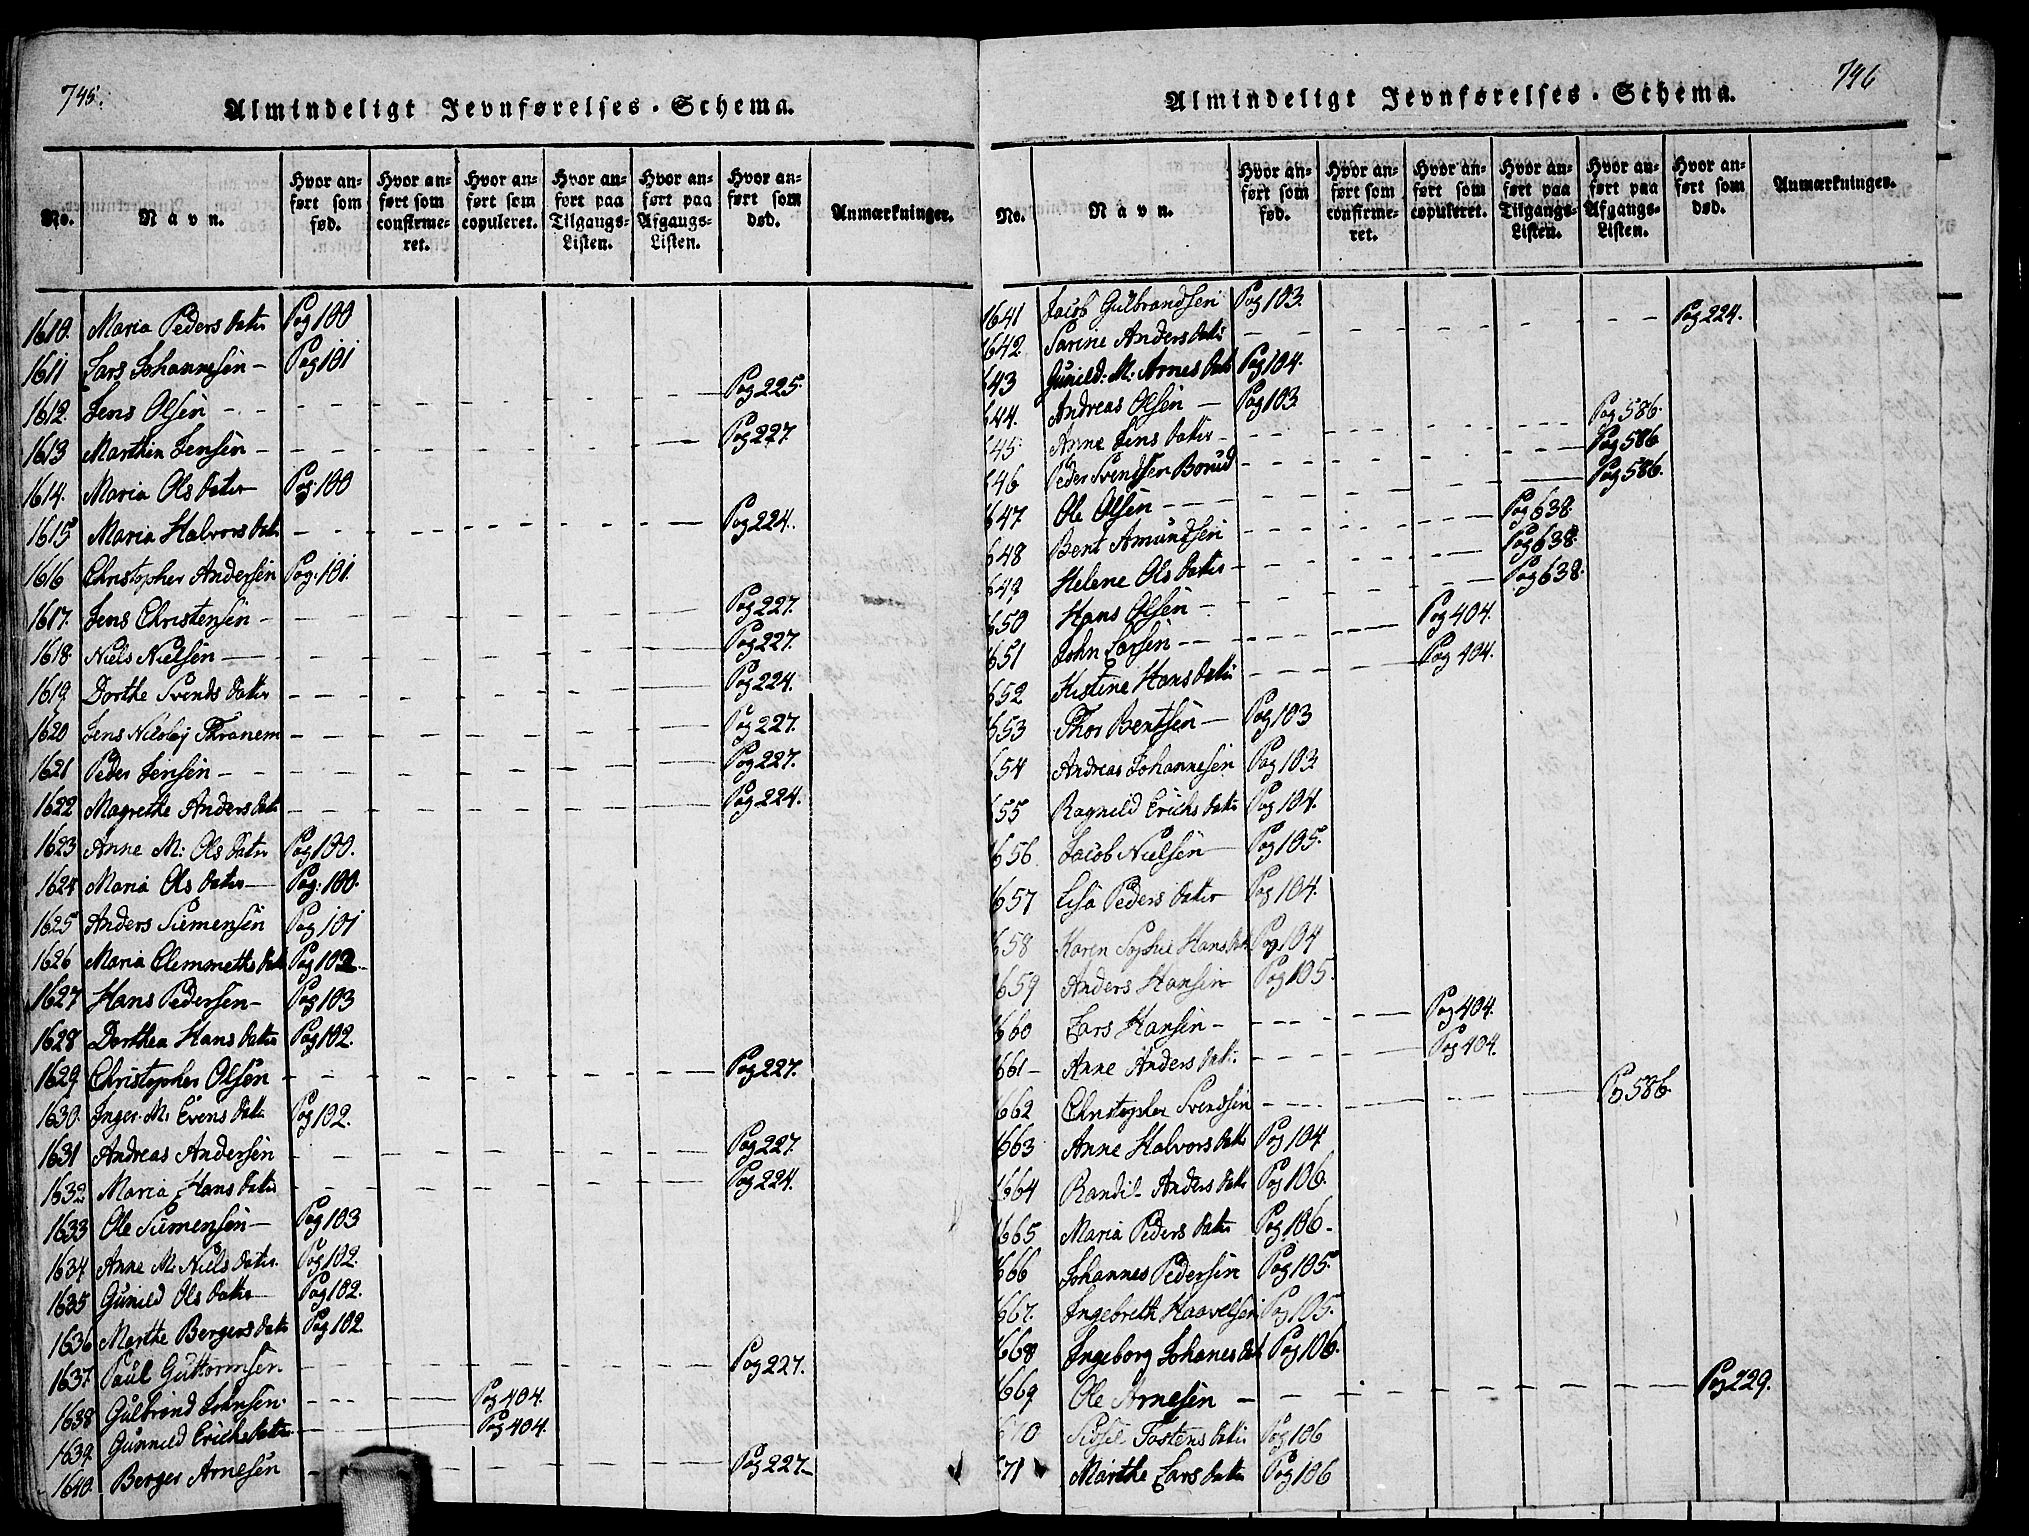 745.
Almindeligt Jevnførelses-Schema.
No. Navn. Hvor anført som fød. Hvor anført som confirmeret. Hvor anført som copuleret. Hvor anført paa Tilgangs-Listen. Hvor anført paa Afgangs-Listen. Hvor anført som død. Anmærkninger.
1610. Maria Peders datter Pag 100
1611 Lars Johannesen - Pag 101
1612. Jens Olsen - Pag 225.
1613 Marthin Jensen - Pag 227.
1614. Maria Ols datter Pag: 100
1615 Maria Halvors datter Pag 224.
1616 Christopher Andersen Pag: 101.
1617. Jens Christensen - Pag 227.
1618 Niels Nielsen Pag 227.
1619 Dorthe Svends datter Pag 224.
1620 Jens Nicolaj Thranem Pag 227.
1621 Peder Jensen - Pag 227.
1622 Magrethe Anders datter Pag 224.
1623 Anne M: Ols datter Pag 100.
1624 Maria Ols datter Pag: 100.
1625 Anders Siemensen Pag 101
1626 Maria Clemmeths datter Pag 102
1627 Hans Pedersen - Pag 103
1628 Dorthea Hans datter Pag 102.
1629 Christopher Olsen Pag 227.
1630. Inger M: Evens datter Pag 102.
1631 Andreas Andersen Pag 227.
1632 Maria Hans datter Pag 224.
1633 Ole Siemensen - Pag 103
1634 Anne M: Niels datter Pag 102.
1635 Gunild Ols datter Pag 102.
1636 Marthe Bergers datter Pag 102
1637. Paul Guttormsen Pag 227.
1638 Gulbrand Johnsen. Pag 404.
1639. Gunnild Erichs datter Pag 404.
1640. Berger Arnesen Pag 227
796
Almindeligt Jevnførelses-Schema.
No. Navn. Hvor anført som fød. Hvor anført som confirmeret. Hvor anført som copuleret. Hvor anført paa Tilgangs-Listen. Hvor anført paa Afgangs-Listen. Hvor anført som død. Anmærkninger.
1641 Jacob Gulbrandsen Pag 103.
1642 Sarine Anders datter Pag 224.
643 Gunild: M: Arnes datter Pag 104.
644. Andreas Olsen Pag 103
645 Anne Jens datter Pag 586.
646 Peder Svendsen Borud Pag 586
647 Ole Olsen Pag 586.
648 Bent Amundsen Pag 638.
649 Helene Ols datter Pag 638.
650 Hans Olsen Pag 638.
651 John Larsen Pag 404.
652 Kistine Hans datter Pag 404.
653 Thor Bentsen Pag 103
654 Andreas Johannesen Pag 103
655 Ragnild Erichs datter Pag 104.
1656. Jacob Nielsen Pag 105.
1657 Lisa Peders datter Pag 104.
1658 Karen Sophie Hans datter Pag 104
1659 Anders Hansen Pag 105.
1660 Lars Hansen - Pag 404.
1661 Anne Anders datter Pag 404.
1662 Christopher Svendsen P 586.
1663 Anne Halvors datter Pag 104
1664 Randil Anders datter Pag 106.
1665 Maria Peders datter Pag 106.
1666 Johannes Pedersen Pag 105.
1667. Ingebreth Haavelsen Pag 105.
1668 Ingeborg Johanes datter Pag 106.
1669 Ole Arnesen - Pag 229.
670 Sidsel Tostens datter Pag 106
671 Marthe Lars datter Pag 106